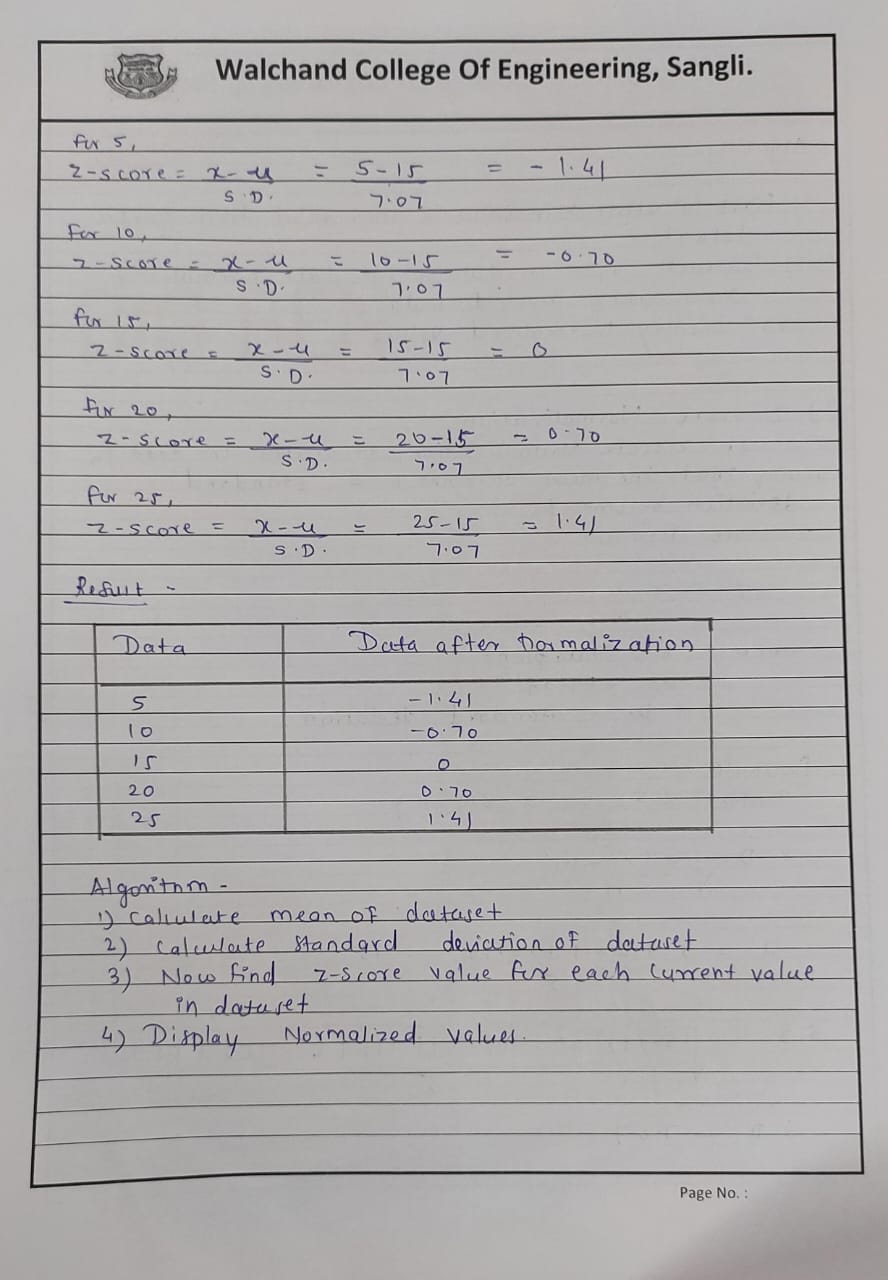 Walchand College Of Engineering, Sangli.
for 5,
z-score = x-u / S.D. = 5-15 / 7.07 = -1.41
for 10,
z-score = x-u / S.D. = 10-15 / 7.07 = -0.70
for 15,
z-score = x-u / S.D. = 15-15 / 7.07 = 0
for 20,
z-score = x-u / S.D. = 20-15 / 7.07 = 0.70
for 25,
z-score = x-u / S.D. = 25-15 / 7.07 = 1.41
Result -
Data Data after Normalization
5 -1.41
10 -0.70
15 0
20 0.70
25 1.41
Algorithm -
1) Calculate mean of dataset
2) Calculate Standard deviation of dataset
3) Now find z-score value for each current value
in dataset
4) Display Normalized values.
Page No. :